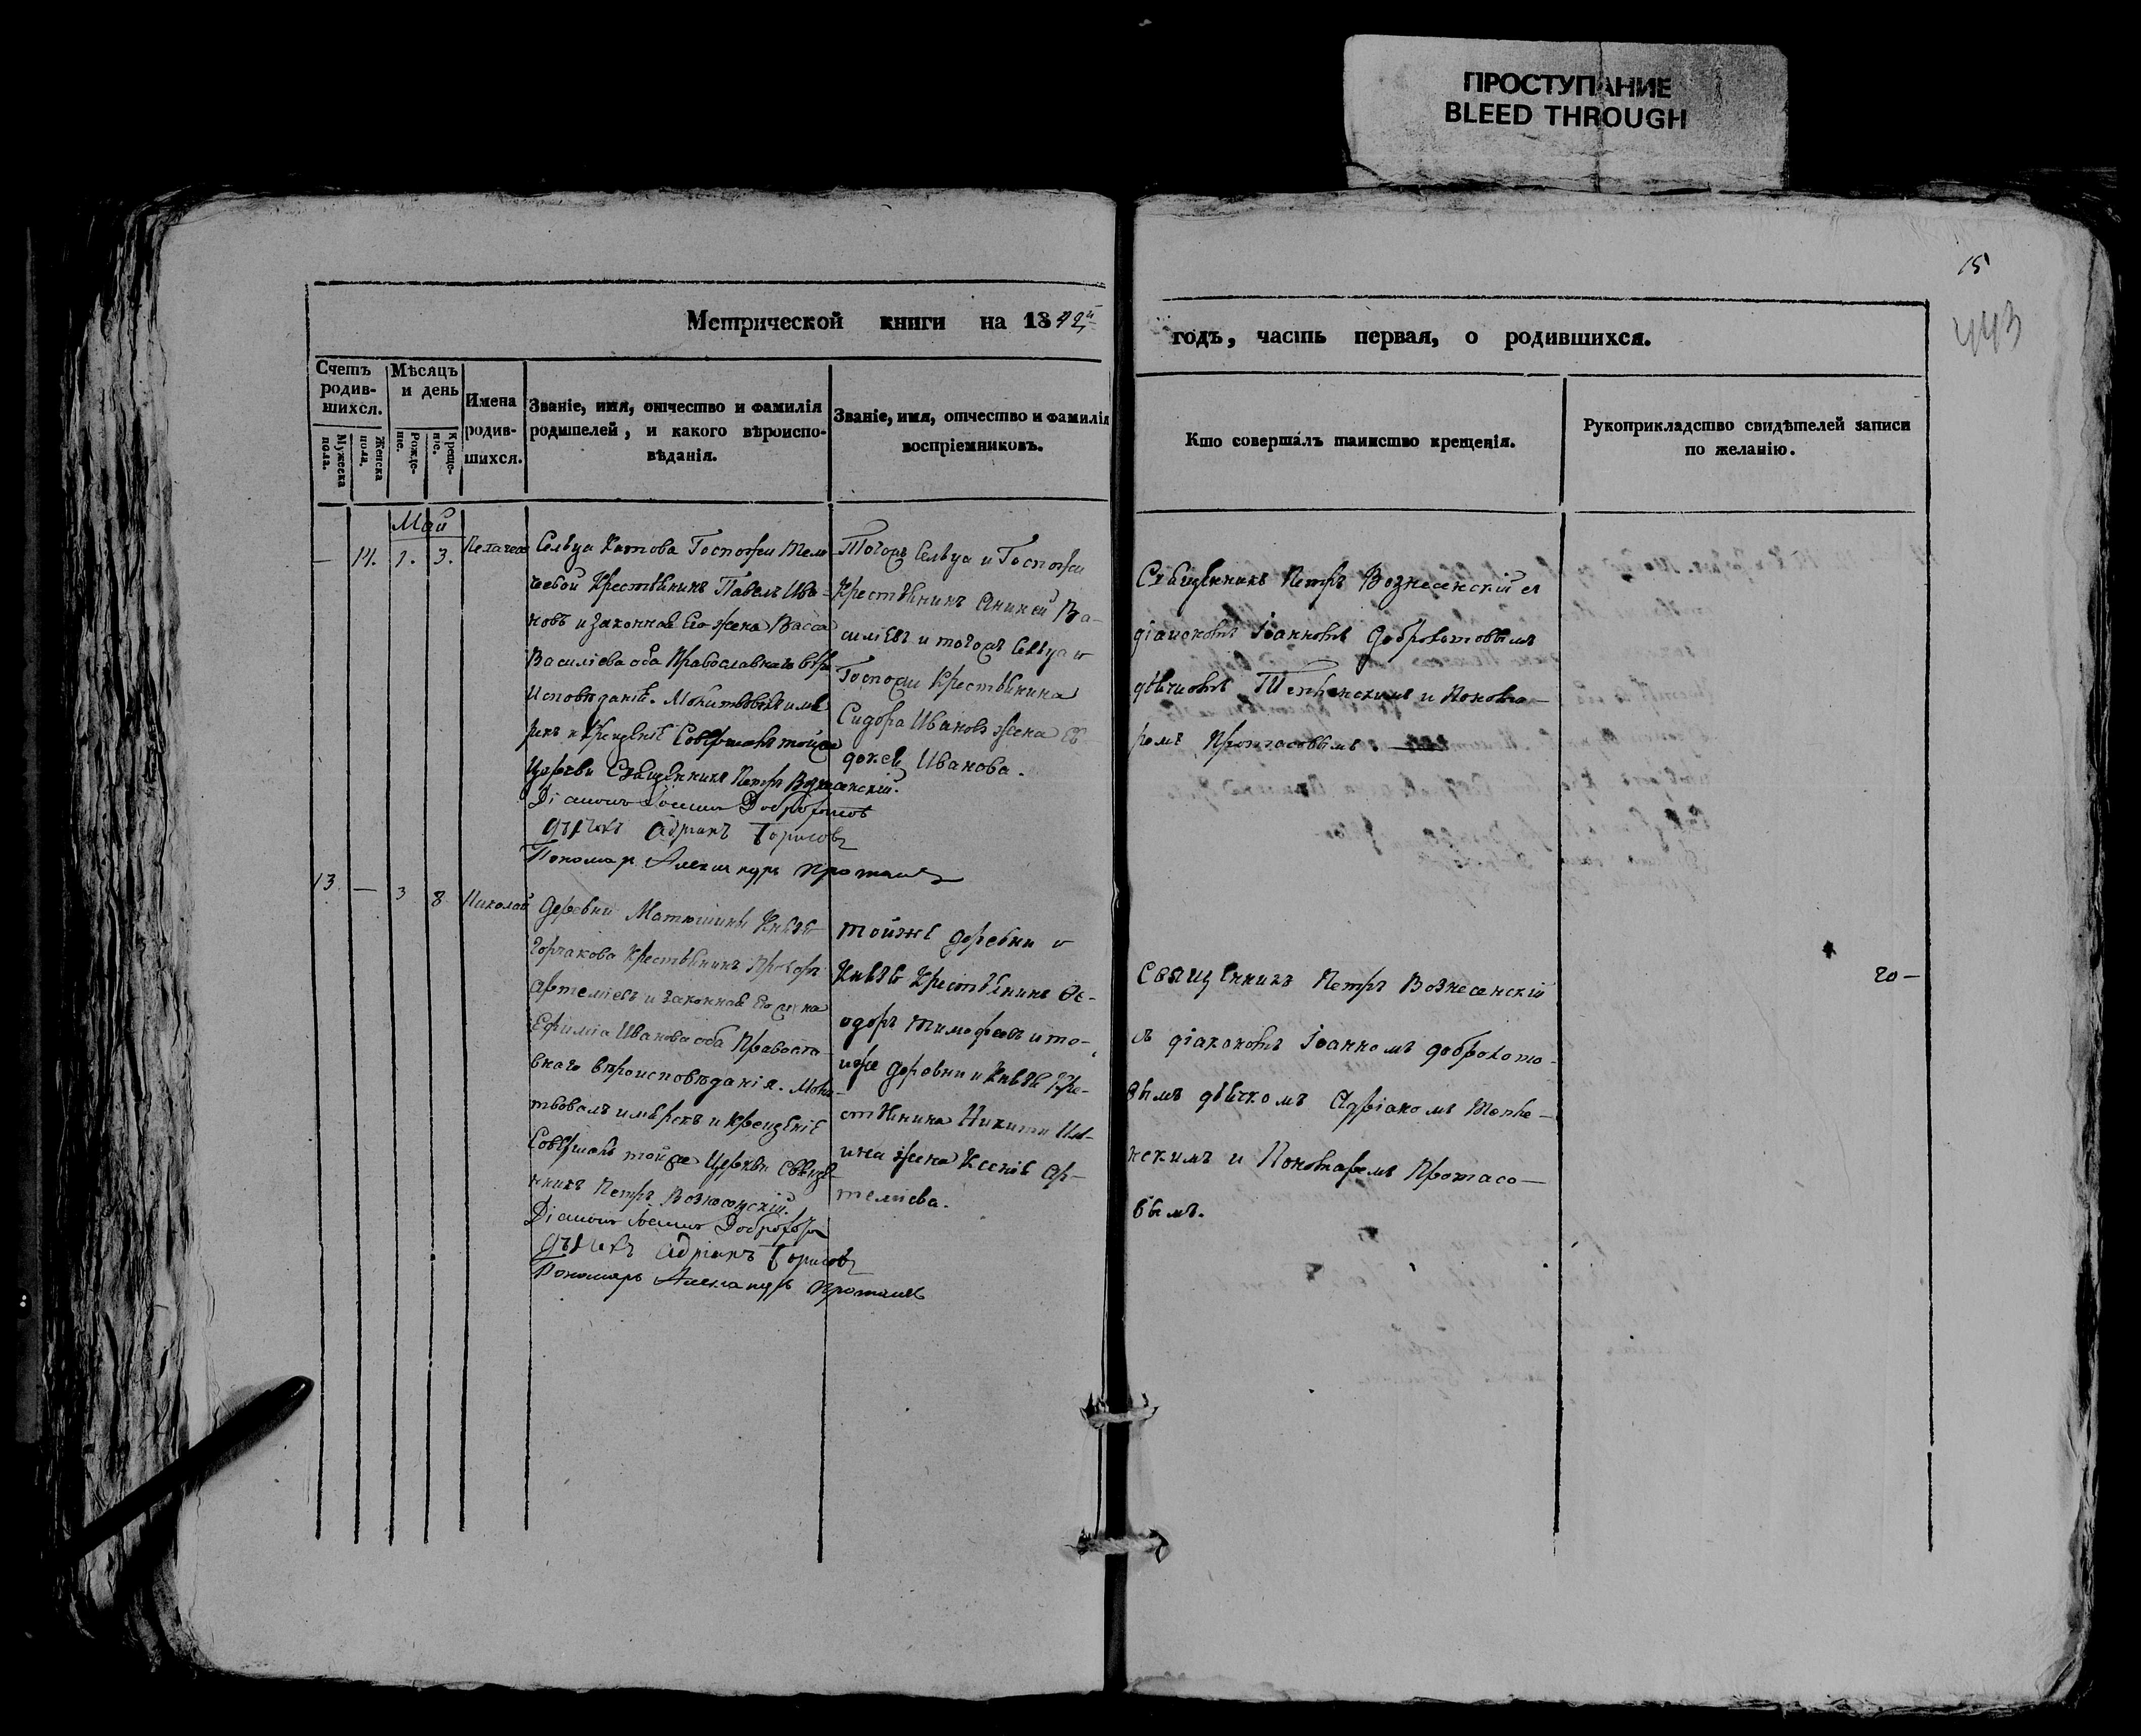 ПРОСТУПАНИЕ
BLEED THROUGH
15
443
Метрической книги на 1842й
годъ, часть первая, о родившихся.
Счетъ родив-шихся.
Мужеска пола.
Женска пола.
Мѣсяцъ и день
Рожде-ніе.
Креще-ніе.
Имена родив-шихся.
Званіе, имя, отчество и фамилія
родителей, и какого вѣроиспо-
вѣданія.
Званіе, имя, отчество и фамилія
воспріемниковъ.
Кто совершалъ таинство крещенія.
Рукоприкладство свидѣтелей записи
по желанію.
Май
— 14. 1. 3.
Пелагея
Сельца Госпожи
Крестьянинъ Павелъ Ива-
новъ и законная его жена Васса
Василіева оба Православнаго вѣро
исповѣданія. Молитвовалъ имя
рекъ и крещеніе совершалъ тойже
Церкви Священникъ Петръ Вознесенскій.
Діаконъ Іоаннъ Доброхотовъ
Дьячекъ Адріанъ Борисовъ
Пономарь Александръ Протасовъ
Тогожъ Сельца и Госпожи
Крестьянинъ Аникей Ва-
силіевъ и тогожъ Сельца и
Госпожи Крестьянина
Сидора Иванова жена Ев-
докея Иванова.
Священникъ Петръ Вознесенскій съ
діакономъ Іоанномъ Доброхотовымъ
дьячкомъ и Понома-
ремъ Протасовымъ.
13. — 3 8
Николай
Деревни Матюшины Князя
Горчакова Крестьянинъ Прохоръ
Артеміевъ и законная его жена
Ефимія Иванова оба Правосла-
внаго вѣроисповѣданія. Моли-
твовалъ имярекъ и крещеніе
совершалъ тойже Церкви Священ-
никъ Петръ Вознесенскій.
Діаконъ Іоаннъ Доброхотовъ
Дьячекъ Адріанъ Борисовъ
Пономарь Александръ Протасовъ
тойже деревни и
Князя Крестьянинъ Ѳе-
одоръ Тимофеевъ и то-
йже деревни и Князя Кре-
стьянина Никиты Иль-
ина жена Ксенія Ар-
теміева.
Священникъ Петръ Вознесенскій
съ діакономъ Іоанномъ Доброхото-
вымъ дьячкомъ Адріаномъ
и Пономаремъ Протасо-
вымъ.
20 —